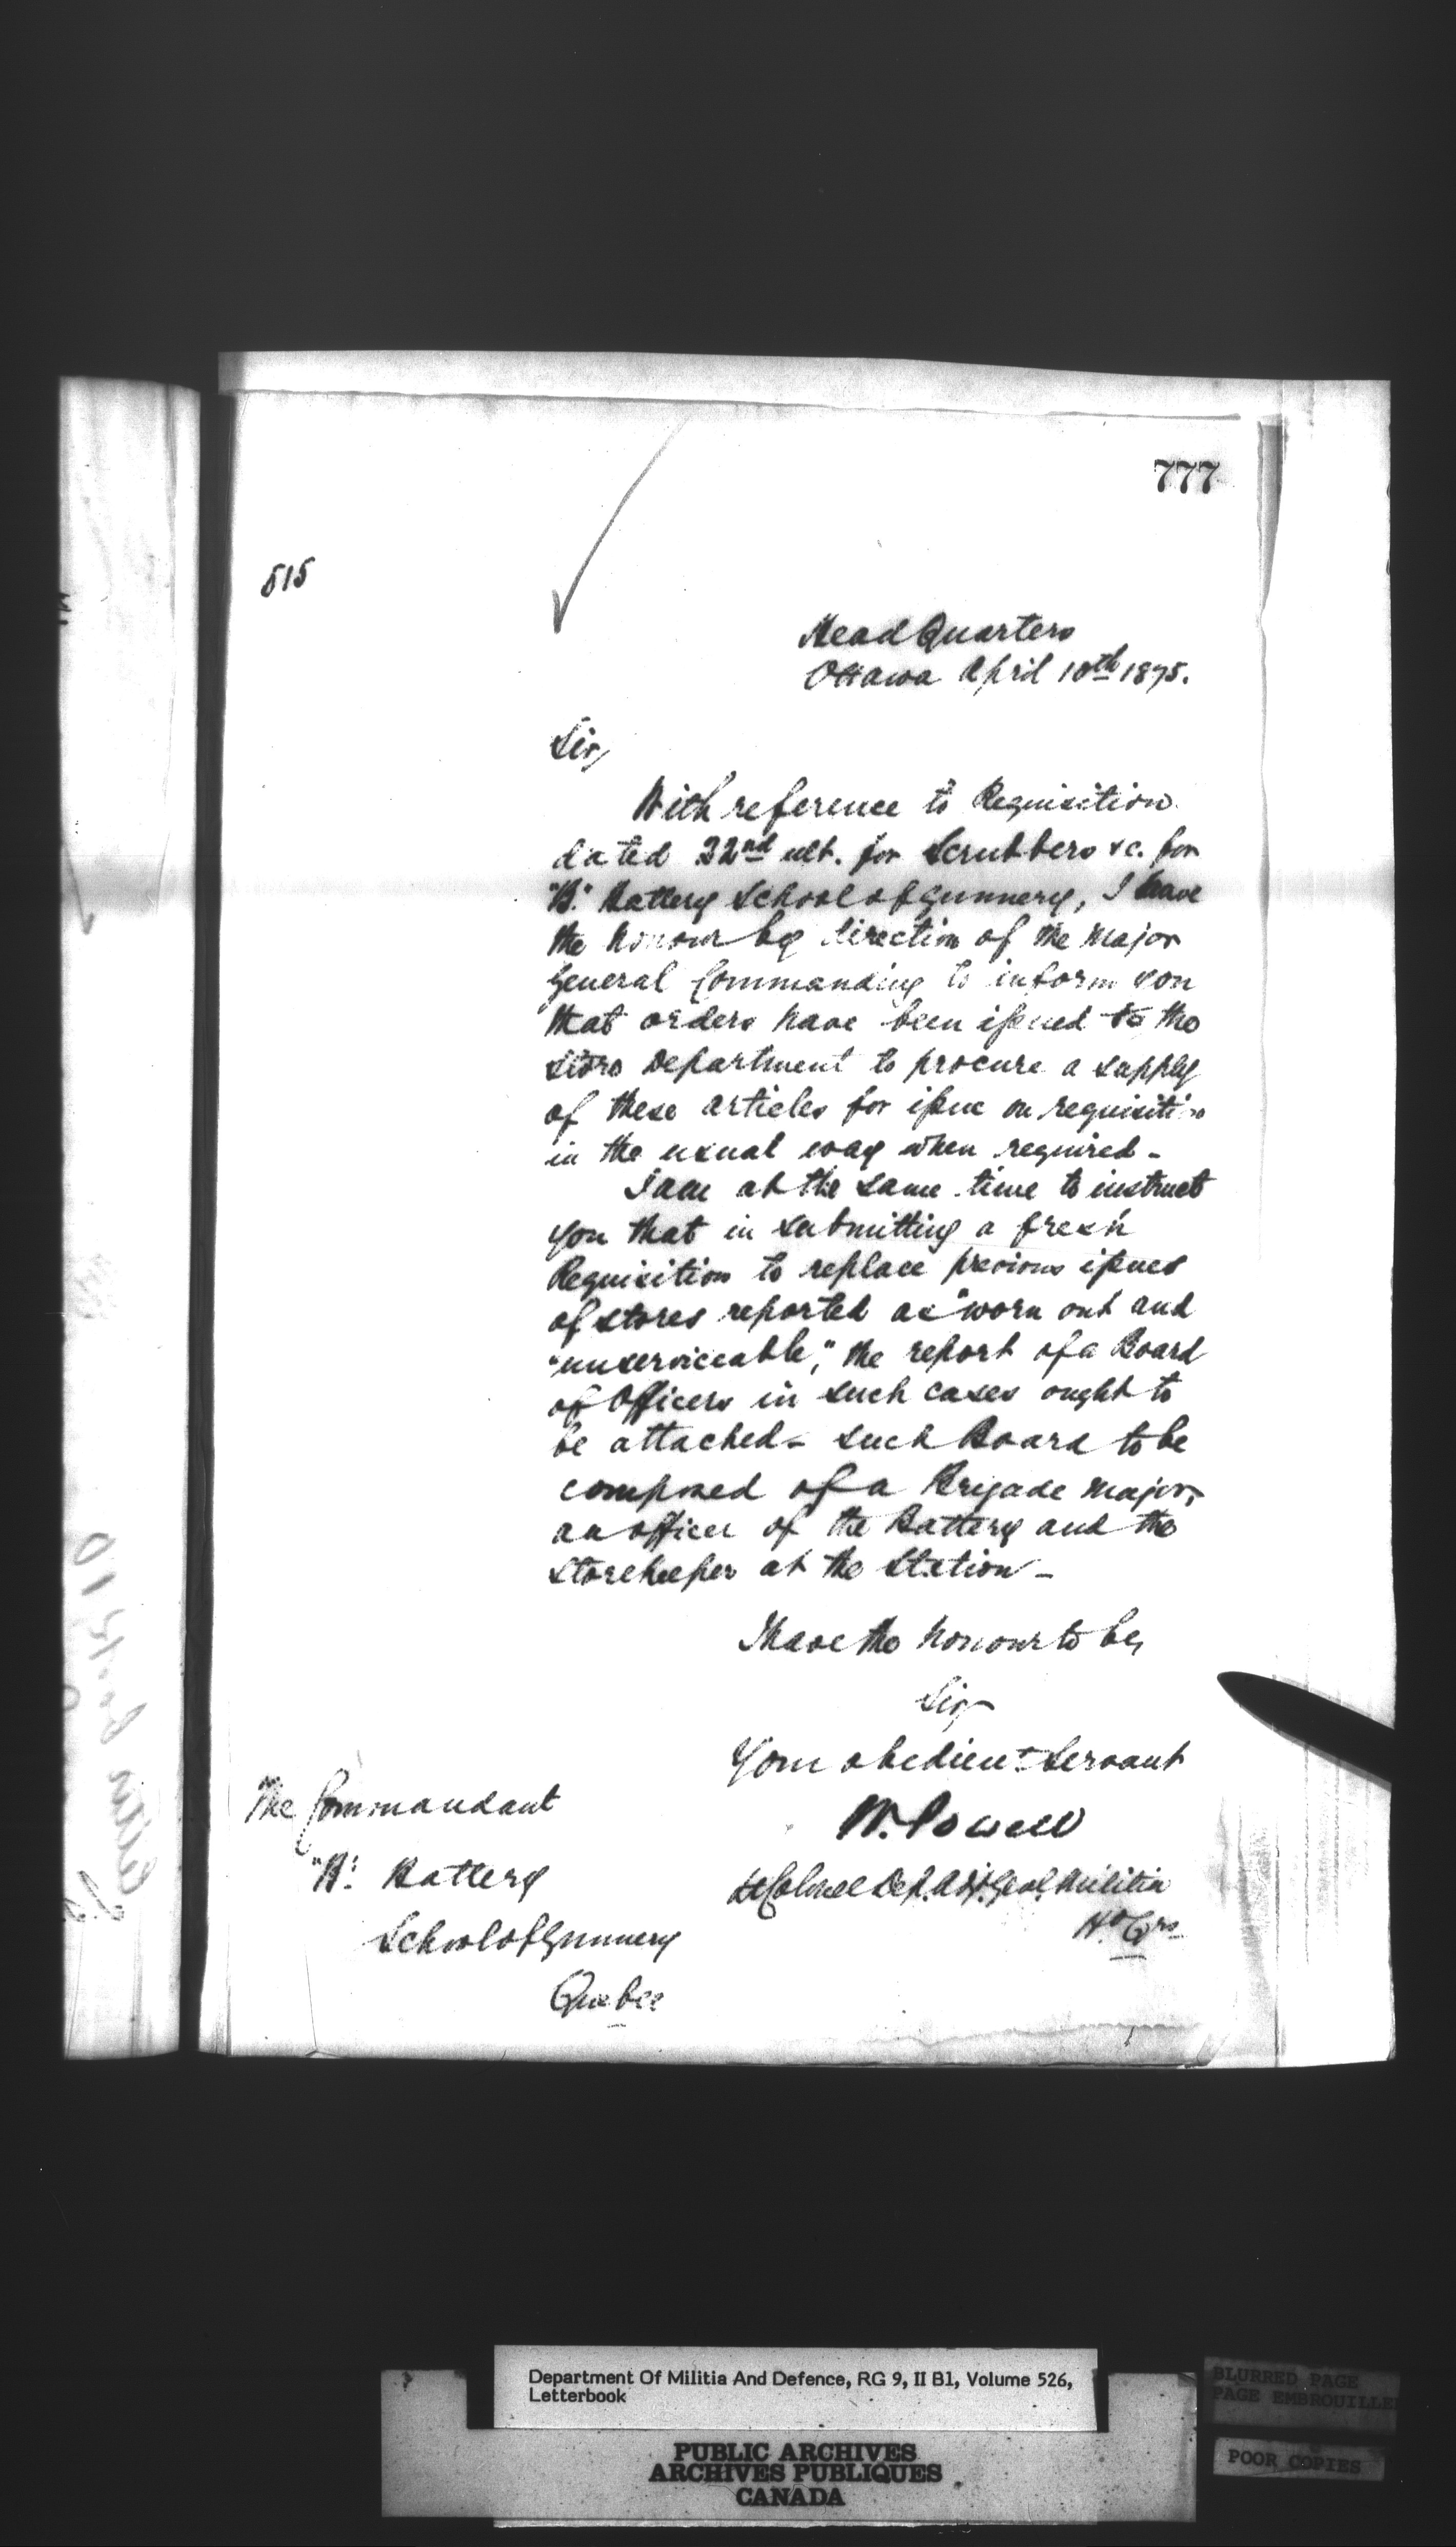 777
515
Head Quarters
Ottawa April 10th 1875.
Sir,
With reference to Requisition
dated 22nd ult. for Scrubbers &c. for
"B." Battery School of Gunnery, I have
the honour by direction of the Major
General Commanding to inform you
that orders have been issued to the
Store Department to procure a supply
of these articles for issue on requisition
in the usual way when required -
I am at the same time to instruct
you that in submitting a fresh
Requisition to replace previous issues
of stores reported as "worn out and
"unserviceable," the report of a Board
of Officers in such cases ought to
be attached - such Board to be
composed of a Brigade Major,
an officer of the Battery and the
Storekeeper at the Station -
I have the honour to be,
Sir,
Your obedient Servant
W. Powell
Lt Colonel Dep. Adjt. Genl. Militia
Hd Qrs
The Commandant
"B". Battery
School of Gunnery
Quebec
Department Of Militia And Defence, RG 9, II B1, Volume 526,
Letterbook
PUBLIC ARCHIVES
ARCHIVES PUBLIQUES
CANADA
BLURRED PAGE
PAGE EMBROUILLE
POOR COPIES